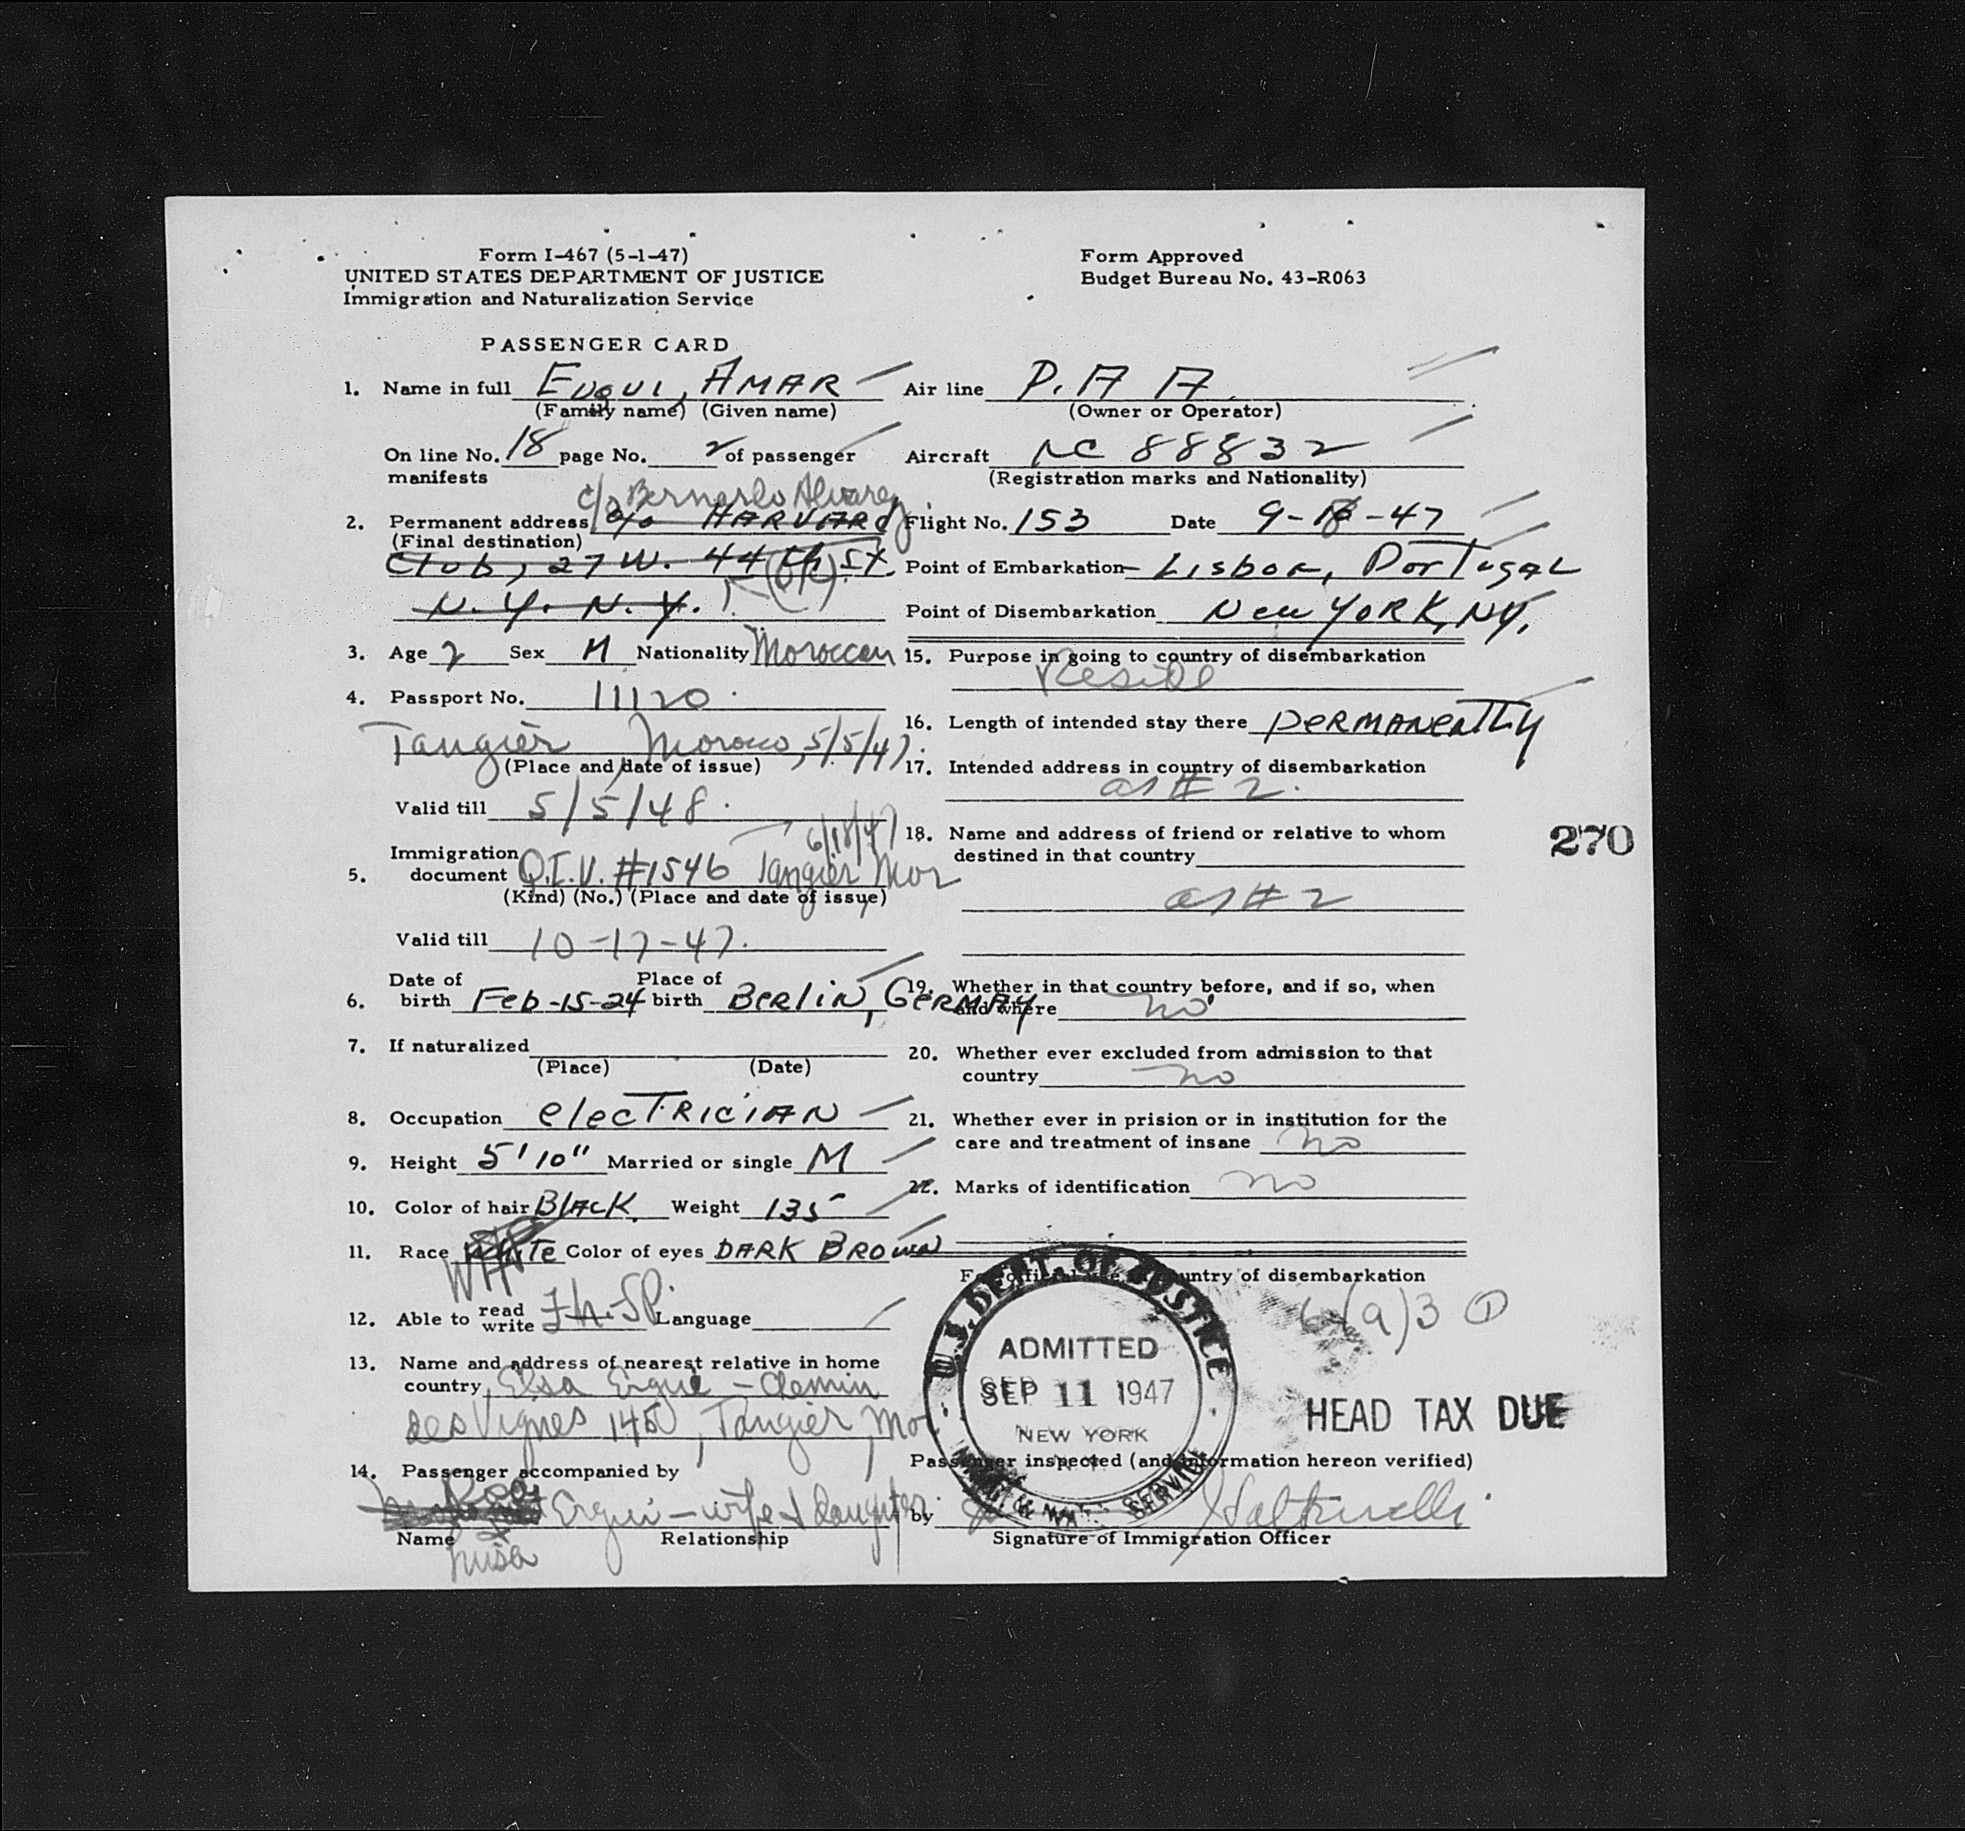 Form I-467 (5-1-47)
UNITED STATES DEPARTMENT OF JUSTICE
Immigration and Naturalization Service
Form Approved
Budget Bureau No. 43-R063
PASSENGER CARD
1. Name in full AMAR
(Family name) (Given name)
On line No. 18 page No. 2 of passenger
manifests
c/o Bernardo Alvarez
2. Permanent address c/o HARVARD
(Final destination)
Club, 27 W. 44th St.
N. Y. N. Y. (OK)
3. Age 2 Sex M Nationality Moroccan
4. Passport No. 11120
Tangier, Morocco, 5/5/47
(Place and date of issue)
Valid till 5/5/48
6/18/47
5. Immigration document Q.I.V. #1546 Tangier Mor
(Kind) (No.) (Place and date of issue)
Valid till 10-17-47.
6. Date of birth Feb-15-24 Place of birth BERLIN, GERMAY
7. If naturalized
(Place) (Date)
8. Occupation elecTRICIAN
9. Height 5'10" Married or single M
10. Color of hair BLACK Weight 135
11. Race WHITE Color of eyes DARK BROWN
WH
12. Able to read write Fh-SP. Language
13. Name and address of nearest relative in home
country, Elsa Ergui - Chemin
des Vignes 145, Tangier, Mor
14. Passenger accompanied by
Ergui - wife & daughter
Name Relationship
Air line P.A A
(Owner or Operator)
Aircraft NC 88832
(Registration marks and Nationality)
Flight No. 153 Date 9- -47
Point of Embarkation Lisbon, Portugal
Point of Disembarkation New YORK, NY.
15. Purpose in going to country of disembarkation
Reside
16. Length of intended stay there PERMANENTLY
17. Intended address in country of disembarkation
as # 2.
18. Name and address of friend or relative to whom
destined in that country
as # 2
270
19. Whether in that country before, and if so, when
and where no
20. Whether ever excluded from admission to that
country no
21. Whether ever in prision or in institution for the
care and treatment of insane no
22. Marks of identification no
For official use country of disembarkation
U.S. DEPT. OF JUSTICE
ADMITTED
SEP 11 1947
NEW YORK
IMMIG. & NAT. SERVICE
(a)3 ①
HEAD TAX DUE
Passenger inspected (and information hereon verified)
by
Signature of Immigration Officer